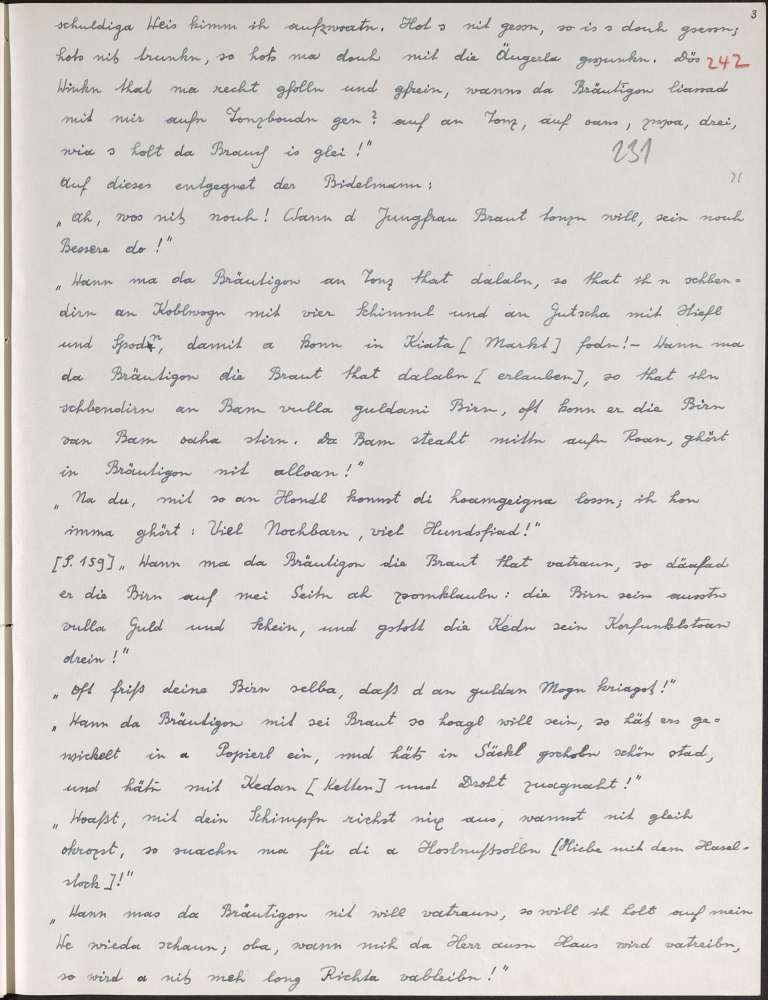 3
schuldiga Weis kimm ih aufzwoatn. Hot s nit gessn, so is s douh gsessn;
hots nit trunkn, so hots ma douh mit die Äugerla gwunkn. Dös 242
Winkn that ma recht gfolln und gfrein, wanns da Bräutigon liassad
mit mir aufn Tonzboudn gen? auf an Tonz, auf oans, zwoa, drei,
wia s holt da Brauch is glei!"
231
Auf dieses entgegnet der Bidelmann:
21
„Ah, woos nits nouh! Wann d Jungfrau Braut tonzn will, sein nouh
Bessere do!"
„Wann ma da Bräutigon an Tonz that dalabn, so that ih n schben=
dirn an Koblwogn mit vier Schimml und an Gutscha mit Stiefl
und Spodn, damit a konn in Kiata [Markt] fodn!- Wann ma
da Bräutigon die Braut that dalabn [erlauben], so that ihn
schbendirn an Bam vulla guldani Birn, oft konn er die Birn
van Bam oaha stirn. Da Bam steaht mittn aufn Roan, ghört
in Bräutigon nit alloan!"
„Na du, mit so an Hondl konnst di hoamgeigna lossn; ih hon
imma ghört: Viel Nochbarn, viel Hundsfiad!"
[S. 159] „Wann ma da Bräutigon die Braut that vatraun, so däafad
er die Birn auf mei Seitn ah zsomklaubn: die Birn sein ausstn
vulla Guld und Schein, und gstott die Kedn sein Korfunklstoan
drein!"
„Oft friß deine Birn selba, daß d an guldan Mogn kriagst!"
„Wann da Bräutigon mit sei Braut so hoagl will sein, so hät ers ge=
wickelt in a Papierl ein, und häts in Säckl gschobn schön stad,
und hätn mit Kedan [Ketten] und Droht zuagnaht!"
„Woaßt, mit dein Schimpfn richst nix aus, wannst nit gleih
okrozst, so suachn ma fü di a Hoslnußsolbn [Hiebe mit dem Hasel=
stock]!"
„Wann mas da Bräutigon nit will vatraun, so will ih holt auf mein
We wieda schaun; oba, wann mih da Herr ausn Haus wird vatreibn,
so wird a nits meh long Richta vableibn!"